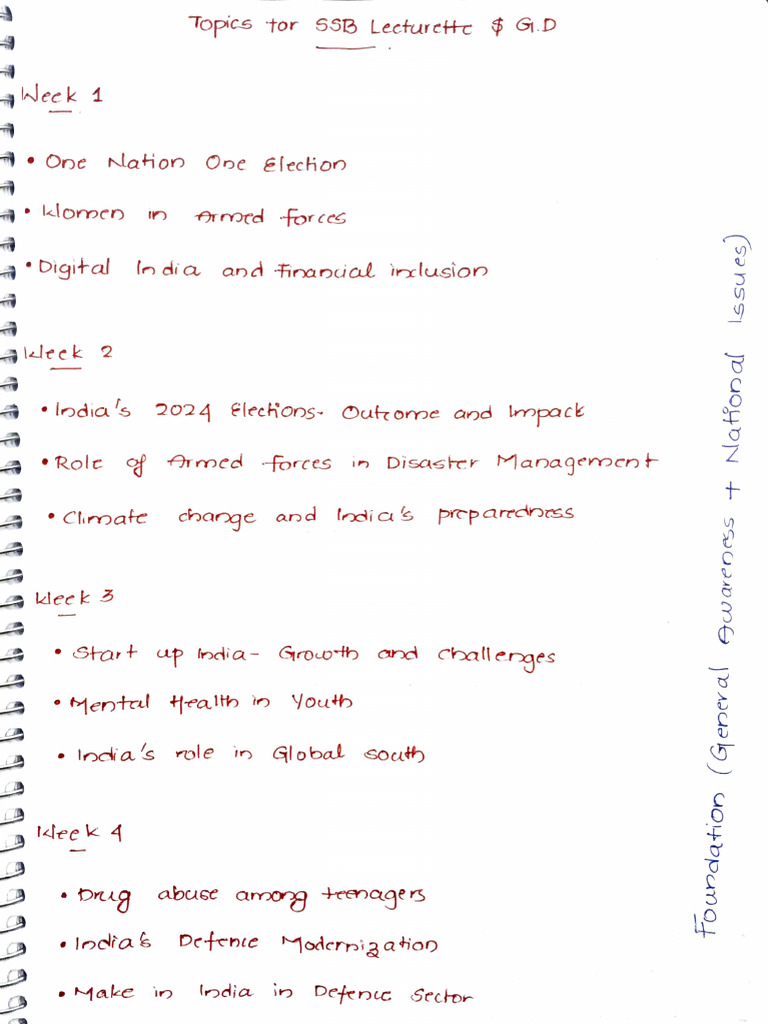 Topics for SSB Lecturette & G.D
Week 1
• One Nation One Election
• Women in Armed forces
• Digital India and Financial inclusion
Week 2
• India's 2024 Elections- Outcome and Impact
• Role of Armed forces in Disaster Management
• Climate change and India's preparedness
Week 3
• Start up India- Growth and challenges
• Mental Health in Youth
• India's role in Global south
Week 4
• Drug abuse among teenagers
• India's Defence Modernization
• Make in India in Defence Sector
Foundation (General Awareness + National Issues)